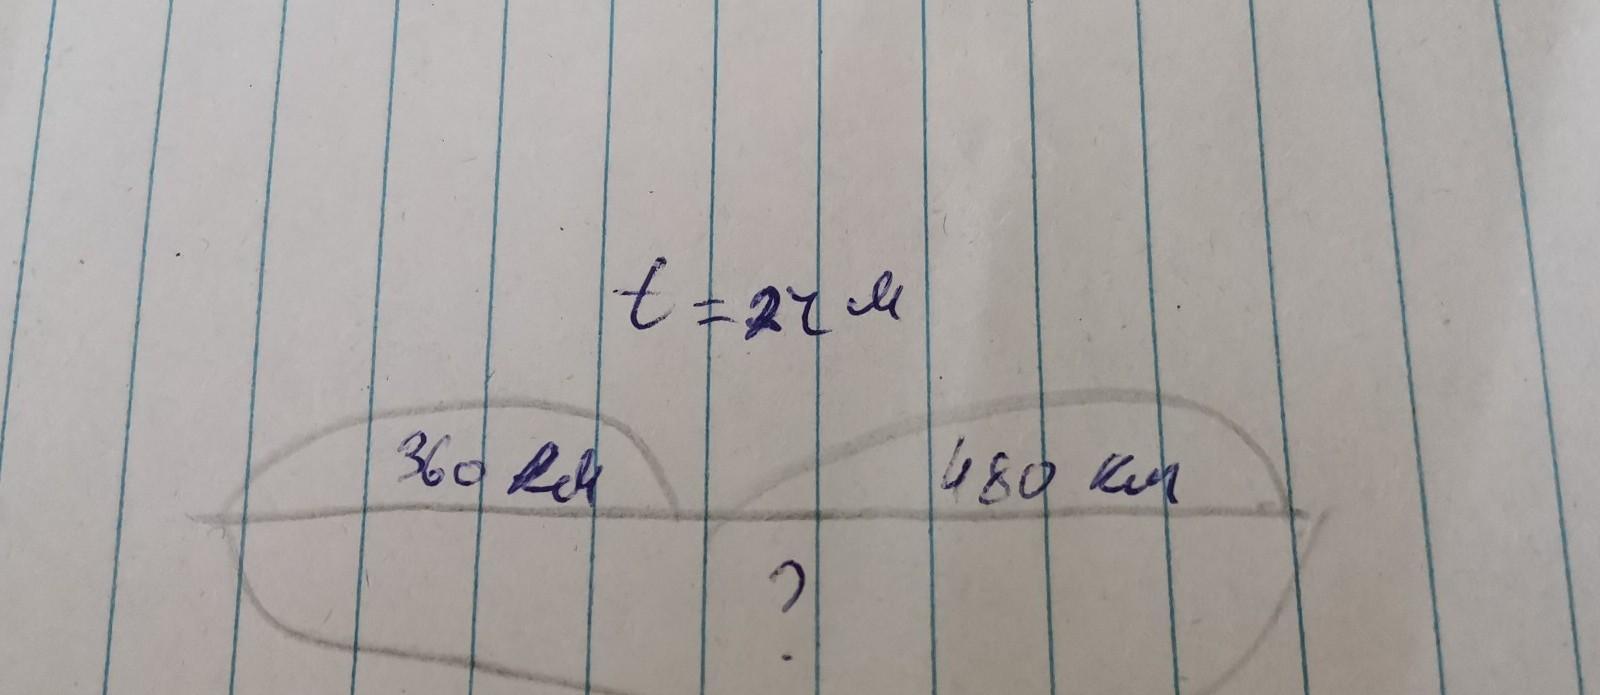 t = 24 м
360 км 480 км
?